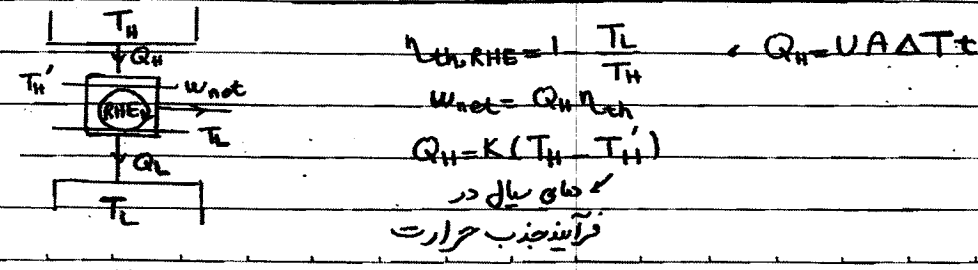 T_H
Q_H
T_H'
W_net
RHE
T_L
Q_L
T_L
η_th,RHE = 1 - T_L / T_H , Q_H = U A Δ T t
W_net = Q_H η_th
Q_H = K ( T_H - T_H' )
دمای سیال در
فرآیند جذب حرارت